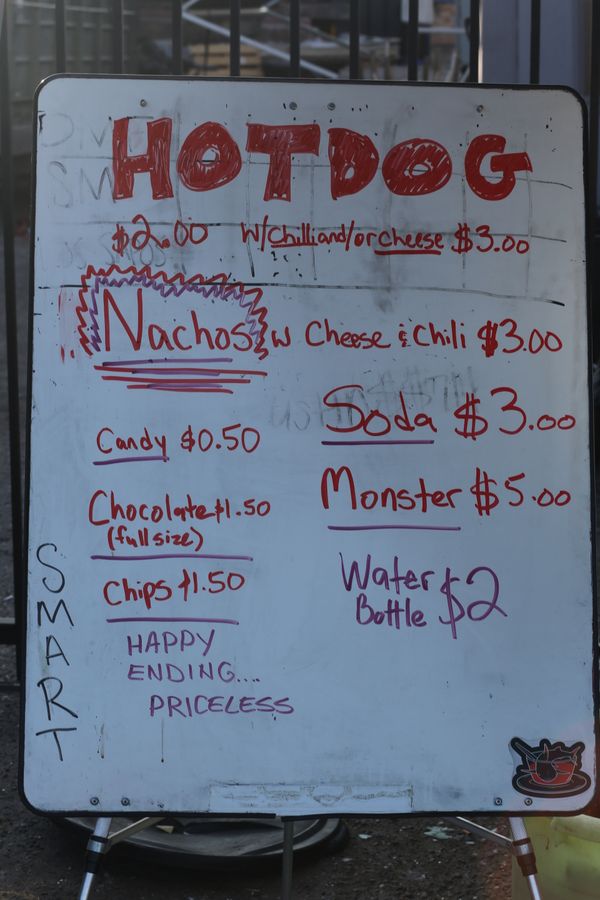 HOTDOG
$2.00 W/Chilli and/or cheese $3.00
Nachos w Cheese & Chili $3.00
Candy $0.50
Soda $3.00
Chocolate $1.50
(full size)
Monster $5.00
Chips $1.50
Water
Bottle $2
HAPPY
ENDING....
PRICELESS
SMART